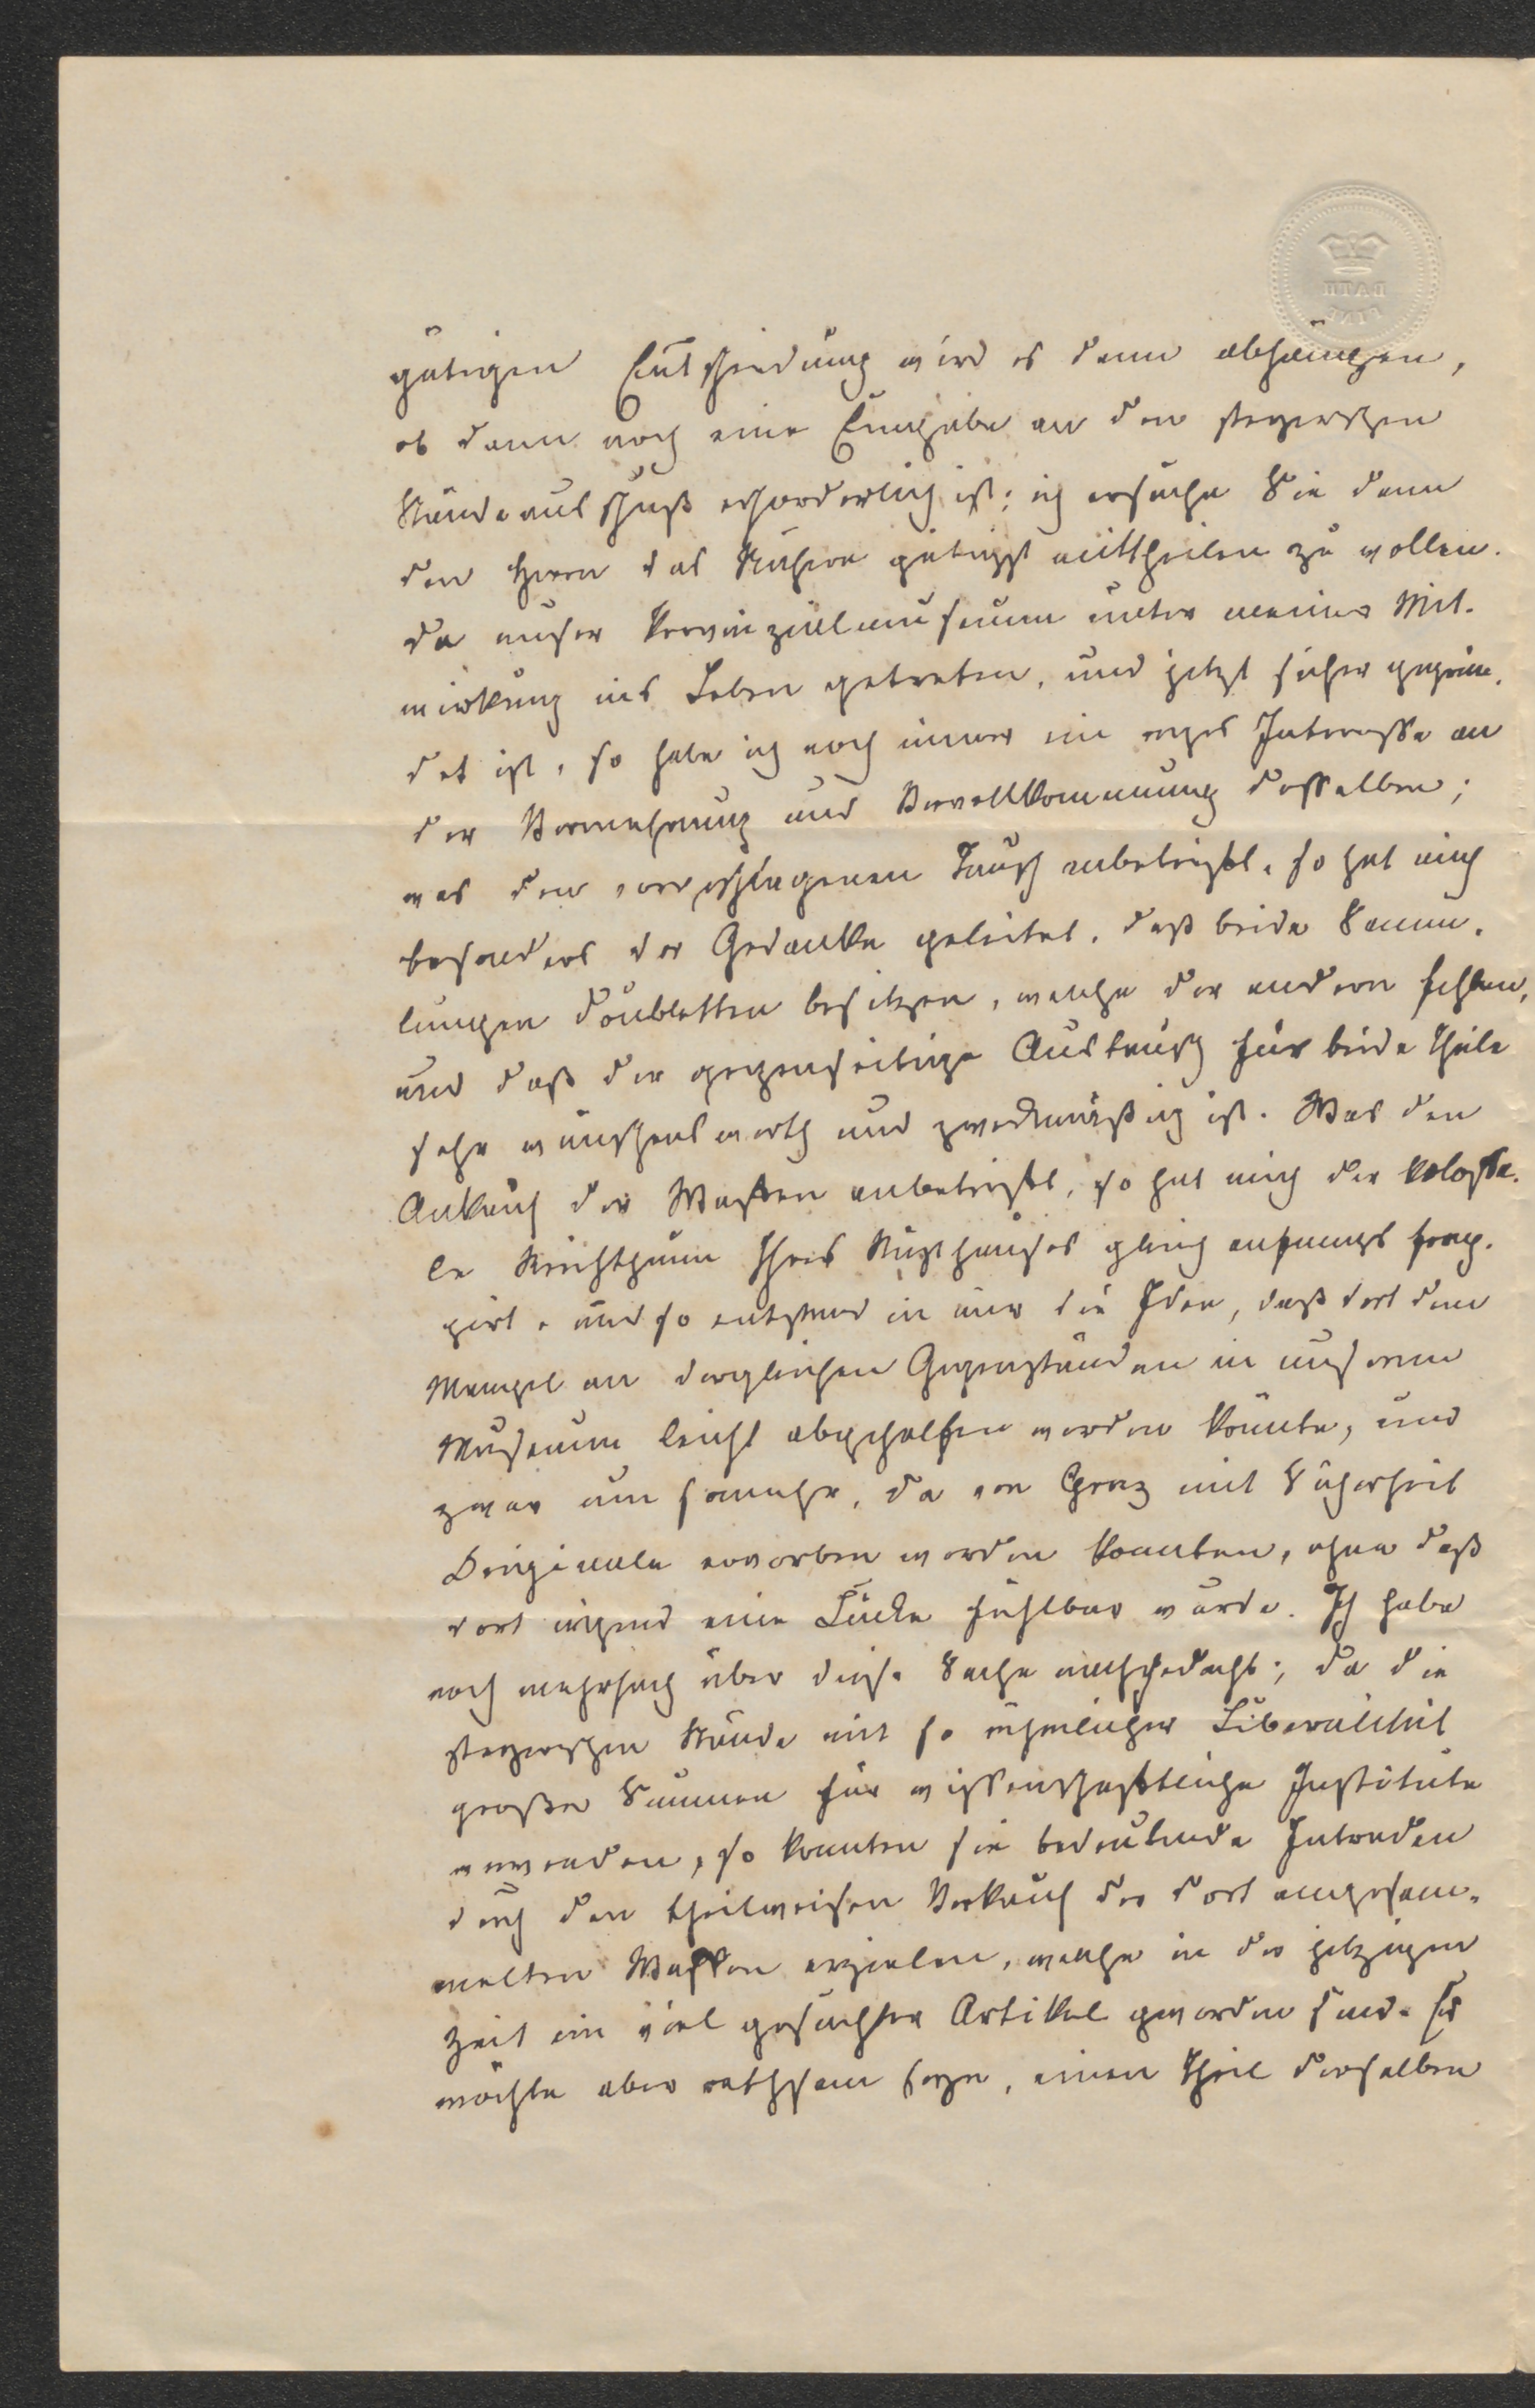 gütigen Entscheidung wird es dann abhängen,
ob dann noch eine Eingabe an den steyerschen
Ständeausschuß erforderlich ist; ich ersuche Sie dann
den Herrn das Nähere gütigst mittheilen zu wollen.
Da unser Provinzialmuseum unter meiner Mit-
wirkung ins Leben getreten, und jetzt sicher gegrün-
det ist, so habe ich noch immer ein reges Interesse an
der Vermehrung und Vervollkommnung desselben;
was den vorgeschlagenen Tausch anbetrifft, so hat mich
besonders der Gedanke geleitet, daß beide Samm-
lungen Doubletten besitzen, welche der andern fehlen,
und daß der gegenseitige Austausch für beide Theile
sehr wünschenswerth und zweckmäßig ist. Was den
Ankauf der Waffen anbetrifft, so hat mich der kolossa-
le Reichthum Ihres Rüsthauses gleich anfangs frap-
pirt, und so entstand in mir die Idee, daß dort dem
Mangel an dergleichen Gegenständen in unserem
Museum leicht abgeholfen werden könnte, und
zwar um somehr, da von Graz mit Sicherheit
Originale erworben werden konnten, ohne daß
dort irgend eine Lücke fühlbar würde. Ich habe
noch mehrfach über diese Sache nachgedacht; da die
steyerschen Stände mit so rühmlicher Liberalität
große Summen für wissenschaftliche Institute
anwenden, so konnten sie bedeutende Intraden
durch den theilweisen Verkauf der dort angesam-
melten Waffen erzielen, welche in der jetzigen
Zeit ein viel gesuchter Artikel geworden sind. Es
möchte aber rathsam seyn, einen Theil derselben
BATH